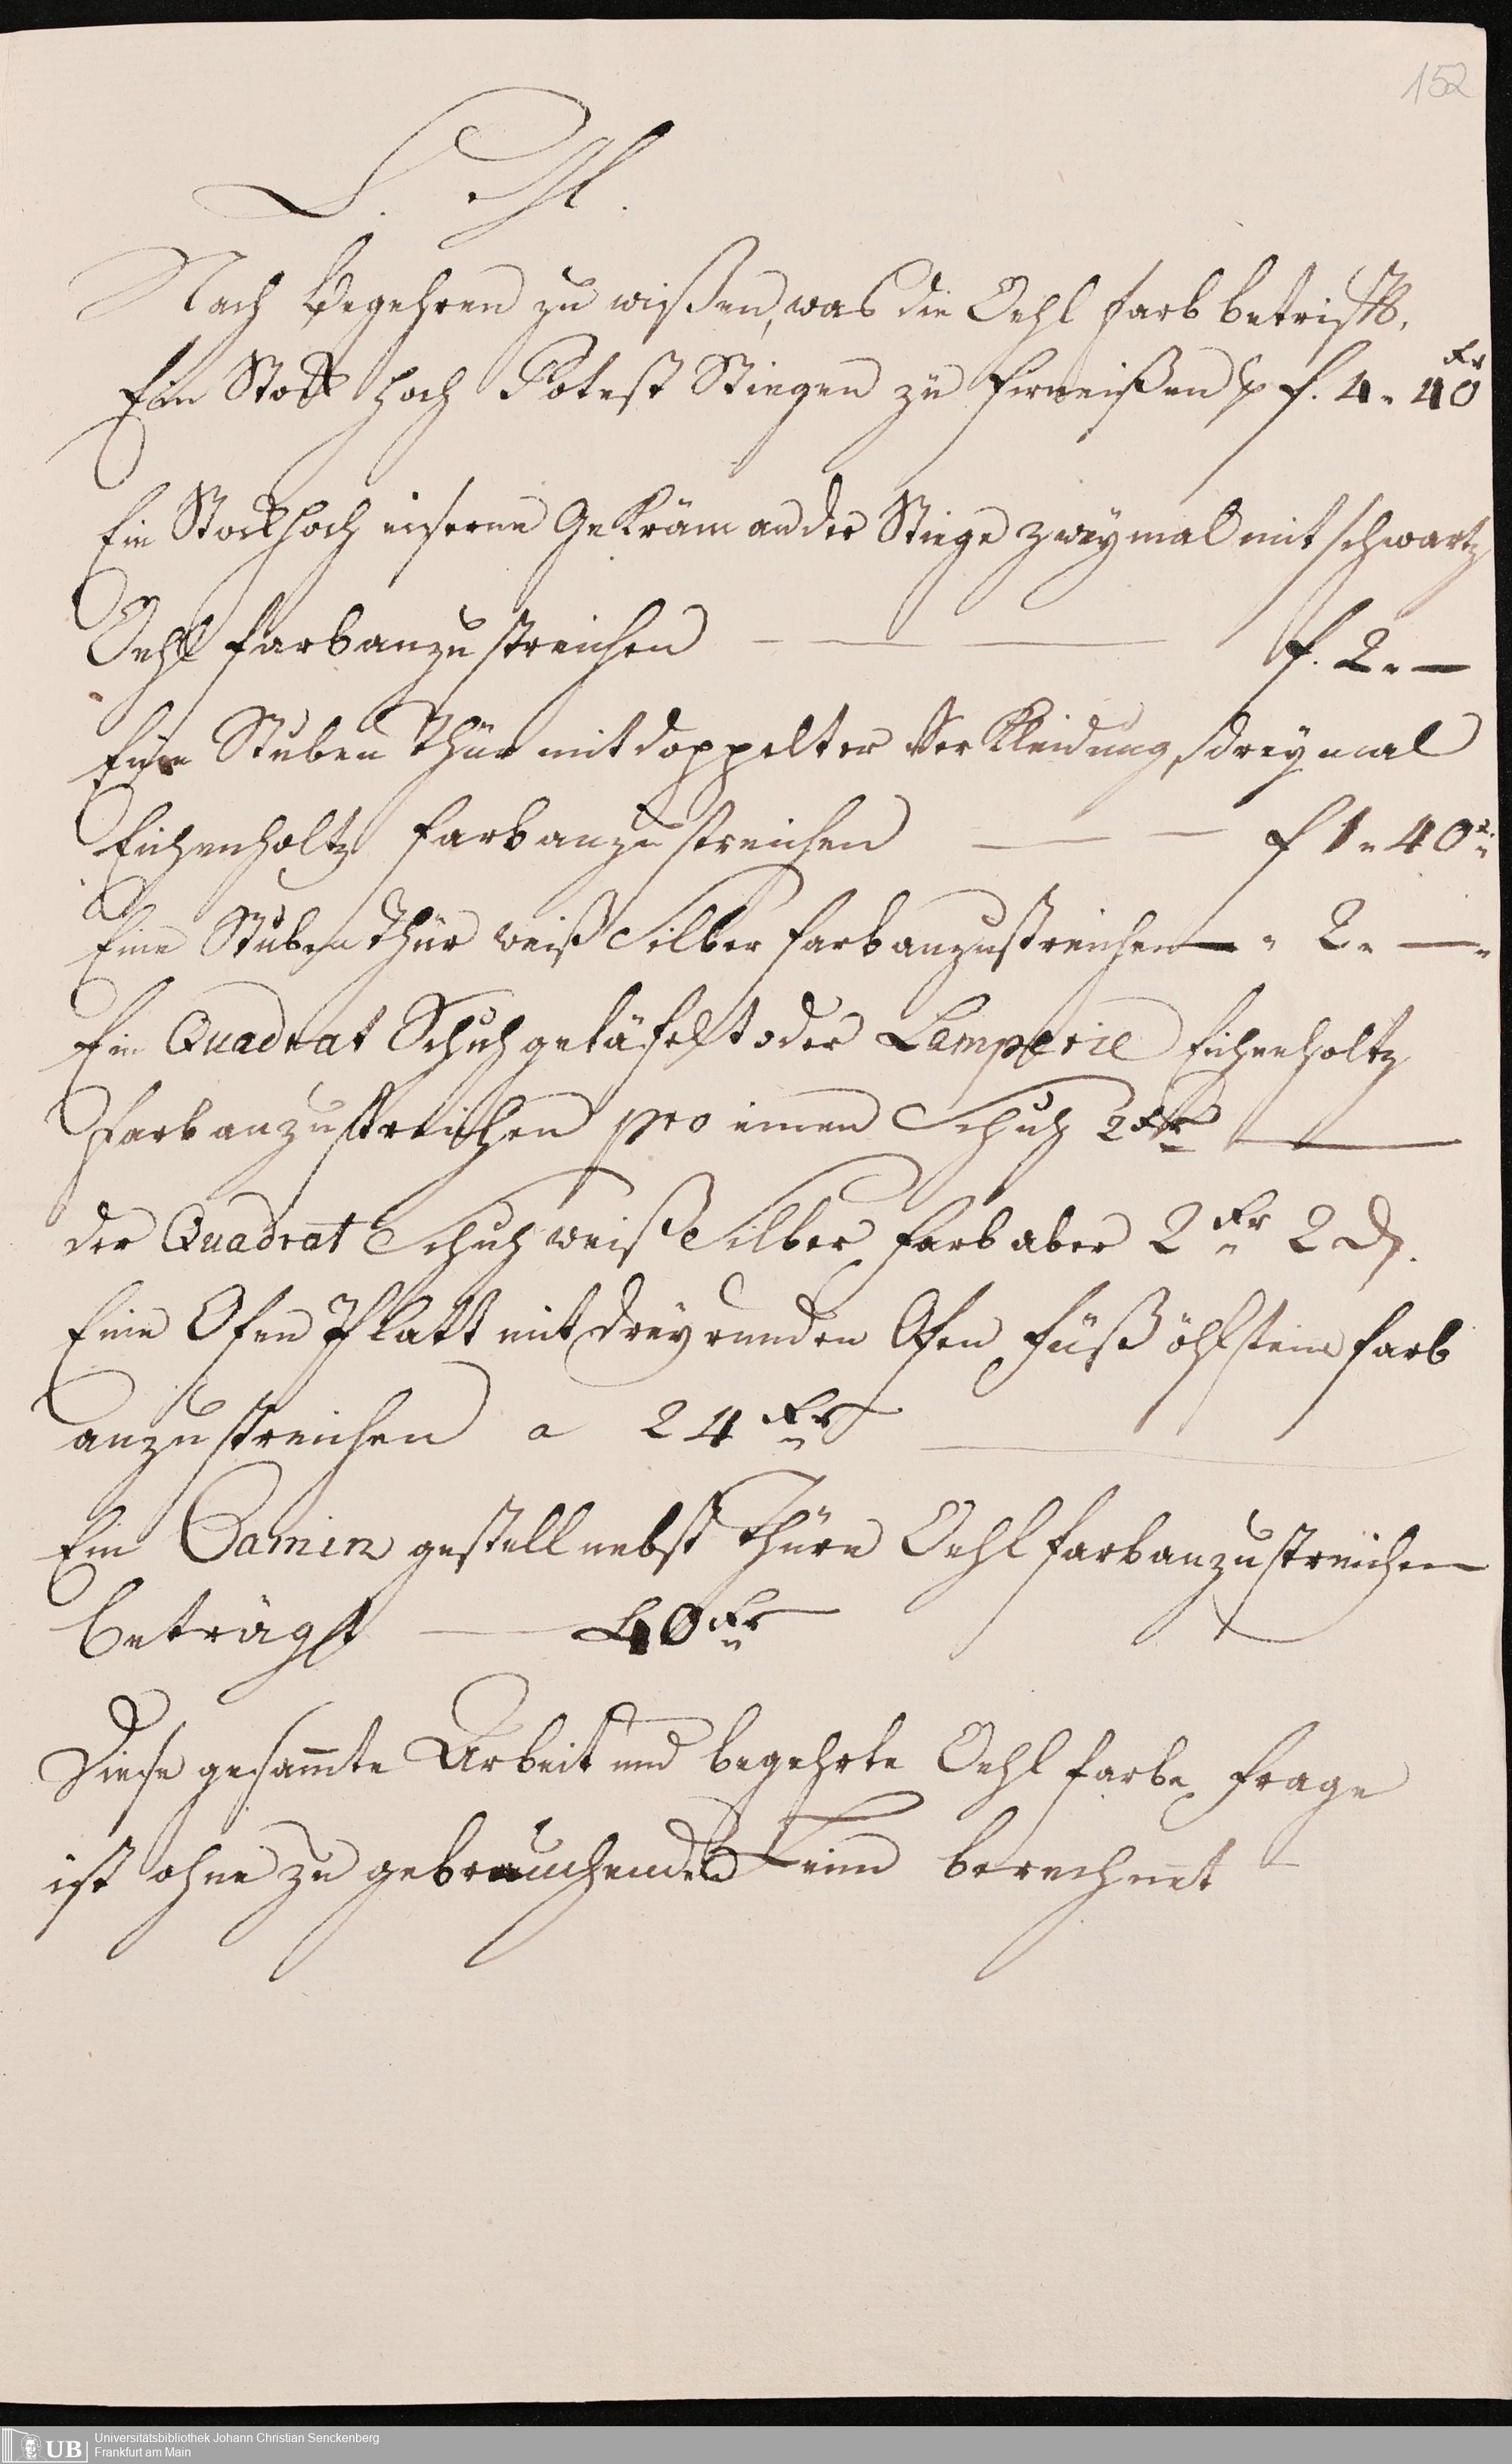 152
Nach Begehren zu wißen, was die Oehl farb betrifft.
Ein Stock hoch Potest Stiegen zu firneißen p f. 4. 40 Kr
Ein Stockhoch eiserne Gekräm an der Stiege zweymal mit schwartz
Oehl farb anzustreichen — — — f. 2. —
Eine Stuben Thür mit doppelter Verkleidung, dreymal
Eichenholtz farb anzustreichen — — f 1. 40 x.
Eine Stuben thür weiß Silber farb anzustreichen — " 2. —
Ein Quadrat Schuh getäfelt oder Lamperie Eichenholtz
farb anzustreichen pro einen Schuh 2 Kr —
der Quadrat Schuh weiß Silber farb aber 2 Kr 2 d.
Eine Ofen Platt mit drey runden Ofen füß öhlstein farb
anzustreichen a 24 Kr
Ein Camin gestell nebst Thüre Oehl farb anzustreichen
beträgt — 40 Kr
Diese gesam̄te Arbeit und begehrte Oehl farbe frage
ist ohne zu gebrauchenden Leim berechnet
UB Universitätsbibliothek Johann Christian Senckenberg
Frankfurt am Main